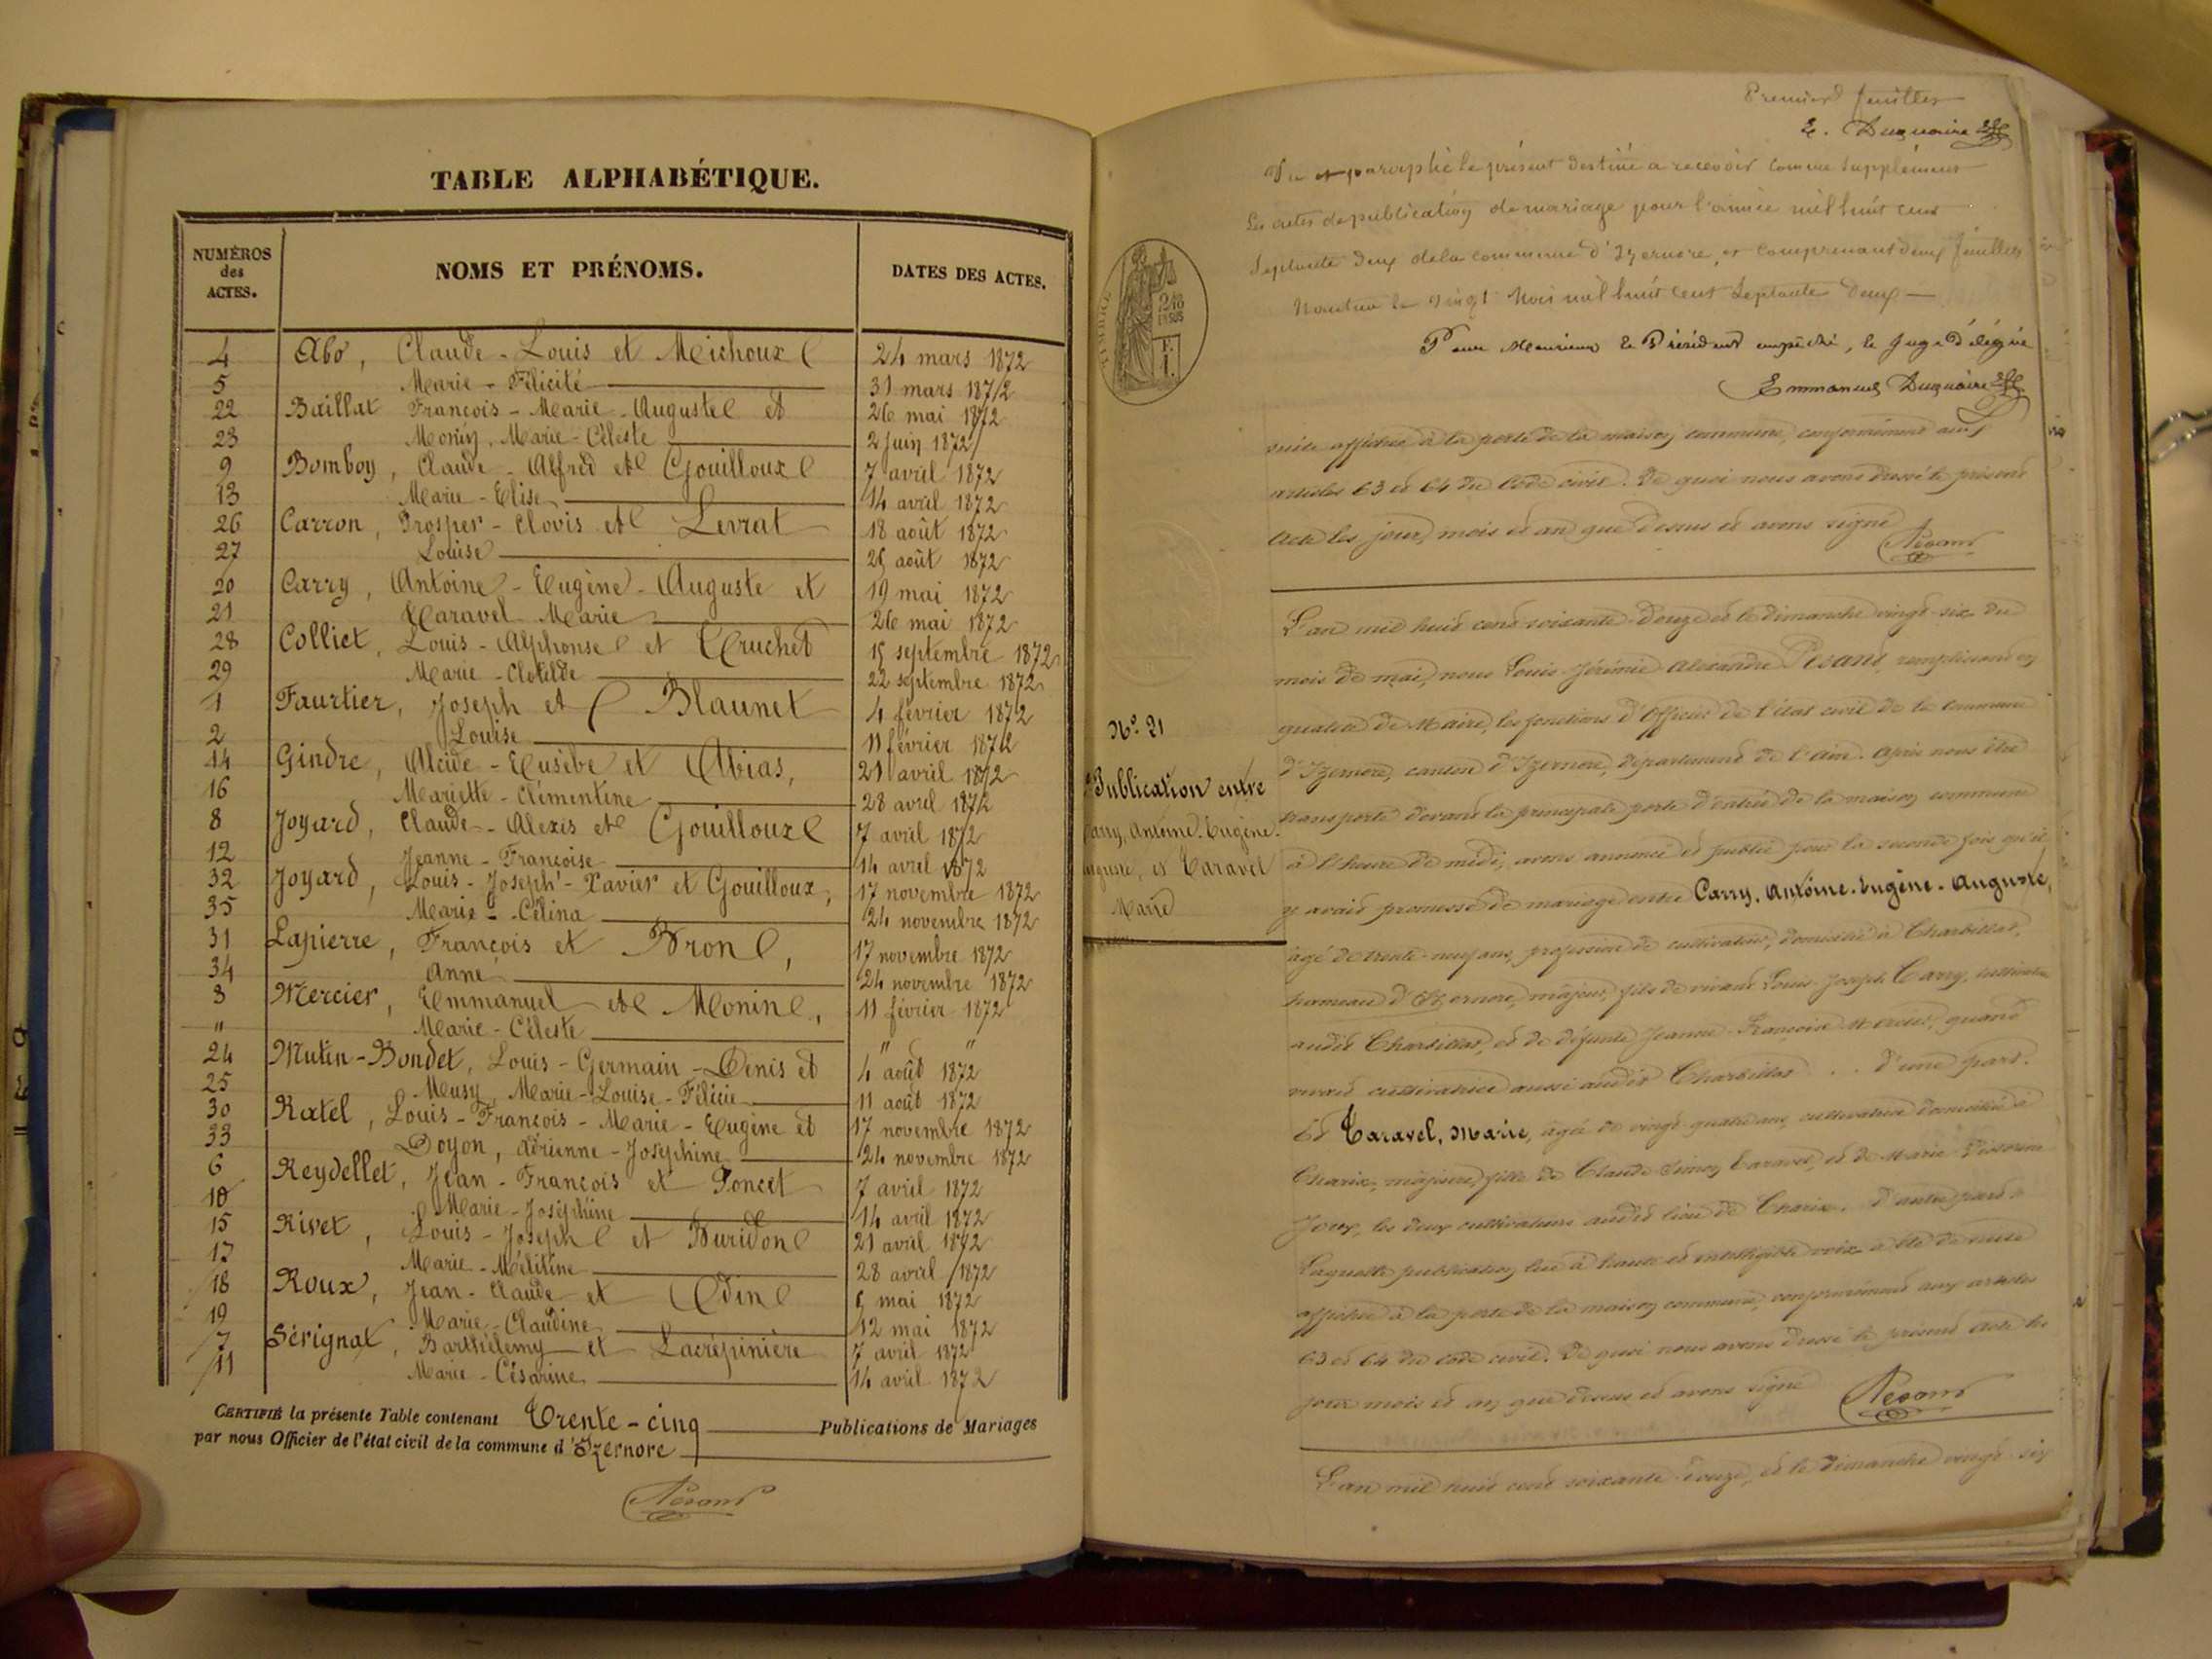 TABLE ALPHABÉTIQUE.
NUMÉROS des ACTES.
NOMS ET PRÉNOMS.
DATES DES ACTES.
4 Abo, Claude-Louis et Michoux 24 mars 1872
5 Marie-Félicité 31 mars 1872
22 Baillat François-Marie-Auguste et 26 mai 1872
23 Monin, Marie-Céleste 2 juin 1872
9 Bomboy, Claude-Alfred et Gouilloux 7 avril 1872
13 Marie-Elise 14 avril 1872
26 Carron, Prosper-Clovis et Levrat 18 août 1872
27 Louise 25 août 1872
20 Carry, Antoine-Eugène-Auguste et 19 mai 1872
21 Taravel Marie 26 mai 1872
28 Colliet, Louis-Alphonse et Truchet 15 septembre 1872
29 Marie-Clotilde 22 septembre 1872
1 Faurtier, Joseph et Blaunet 4 février 1872
2 Louise 11 février 1872
14 Gindre, Alcide-Eusèbe et Abias, 21 avril 1872
16 Mariette-Clémentine 28 avril 1872
8 Joyard, Claude-Alexis et Gouilloux 7 avril 1872
12 Jeanne-Françoise 14 avril 1872
32 Joyard, Louis-Joseph-Xavier et Gouilloux, 17 novembre 1872
35 Marie-Célina 24 novembre 1872
31 Lapierre, François et Bron, 17 novembre 1872
34 Anne 24 novembre 1872
3 Mercier, Emmanuel et Monin, 11 février 1872
" Marie-Céleste " "
24 Mutin-Bondet, Louis-Germain-Denis et 4 août 1872
25 Musy, Marie-Louise-Félicie 11 août 1872
30 Ratel, Louis-François-Marie-Eugène et 17 novembre 1872
33 Doyon, Adrienne-Joséphine 24 novembre 1872
6 Reydellet, Jean-François et Poncet 7 avril 1872
10 Marie-Joséphine 14 avril 1872
15 Rivet, Louis-Joseph et Buridon 21 avril 1872
17 Marie-Mélitine 28 avril 1872
18 Roux, Jean-Claude et Odin 5 mai 1872
19 Marie-Claudine 12 mai 1872
7 Sérignat, Barthélemy et Lacrépinière 7 avril 1872
11 Marie-Césarine 14 avril 1872
CERTIFIÉ la présente Table contenant Trente-cinq Publications de Mariages
par nous Officier de l'état civil de la commune d'Izernore
Premier feuillet
E. Duquaire
Vu et paraphé le présent destiné a recevoir comme supplément
Les actes de publication de mariage pour l'année mil huit cent
septante deux de la commune d'Izernore, et comprenant deux feuillets
Nantua le vingt Mai mil huit cent septante deux
Pour Monsieur le Président empêché, le Juge délégué
Emmanuel Duquaire
suite affichée à la porte de la maison commune, conformément aux
articles 63 et 64 du Code civil. De quoi nous avons dressé le présent
acte les jour, mois et an que dessus et avons signé
L'an mil huit cent soixante-douze et le dimanche vingt-six du
mois de mai, nous Louis Jérémie Alexandre remplissant en
qualité de Maire, les fonctions d'Officier de l'état civil de la commune
d'Izernore, canton d'Izernore, département de l'Ain. Après nous être
transporté devant la principale porte d'entrée de la maison commune
à l'heure de midi, avons annoncé et publié pour la seconde fois qu'il
y avait promesse de mariage entre Carry, Antoine-Eugène-Auguste,
âgé de trente-neuf ans, profession de cultivateur, domicilié à Charbillat,
hameau d'Izernore, majeur, fils de vivant Louis-Joseph Carry, cultivateur
audit Charbillat, et de défunte Jeanne-Françoise Mercier, quand
vivait cultivatrice aussi audit Charbillat . . d'une part.
Et Taravel, Marie, âgée de vingt-quatre ans, cultivatrice domiciliée à
Charix, majeure, fille de Claude Taravel, et de Marie
Joux, les deux cultivateurs audit lieu de Charix. d'autre part
Laquelle publication lue à haute et intelligible voix a été de suite
affichée à la porte de la maison commune, conformément aux articles
63 et 64 du Code civil. De quoi nous avons dressé le présent acte les
jour mois et an que dessus et avons signé
L'an mil huit cent soixante-douze, et le dimanche vingt-six
N° 21
Publication entre
Carry, Antoine-Eugène-
Auguste, et Taravel
Marie